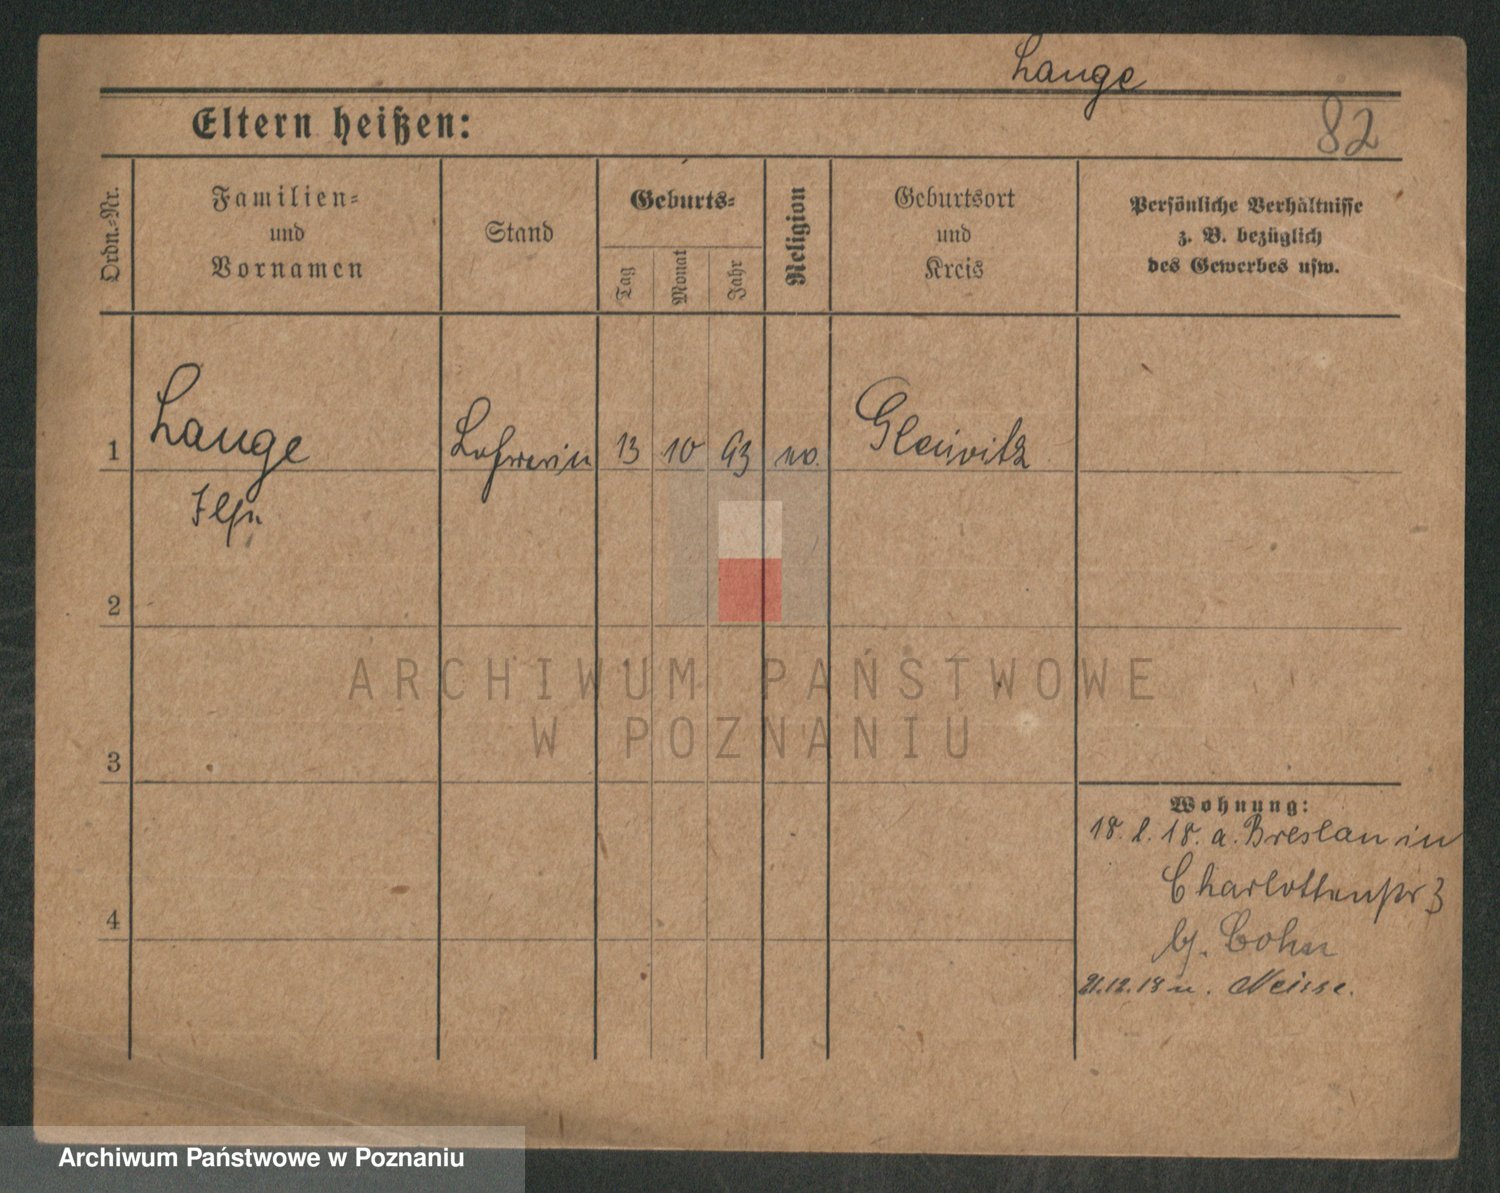 Lange
82
Eltern heißen:
Ordn.-Nr.
Familien-
und
Vornamen
Stand
Geburts-
Tag
Monat
Jahr
Religion
Geburtsort
und
Kreis
Persönliche Verhältnisse
z. B. bezüglich
des Gewerbes usw.
1
Lange
13
10
93
Gleiwitz
Ilse
2
ARCHIWUM PAŃSTWOWE
W POZNANIU
3
Wohnung:
18. 18. a. Breslau in
Charlottenstr 3
b/. Cohn
4
21.12.18 n. Neisse.
Archiwum Państwowe w Poznaniu